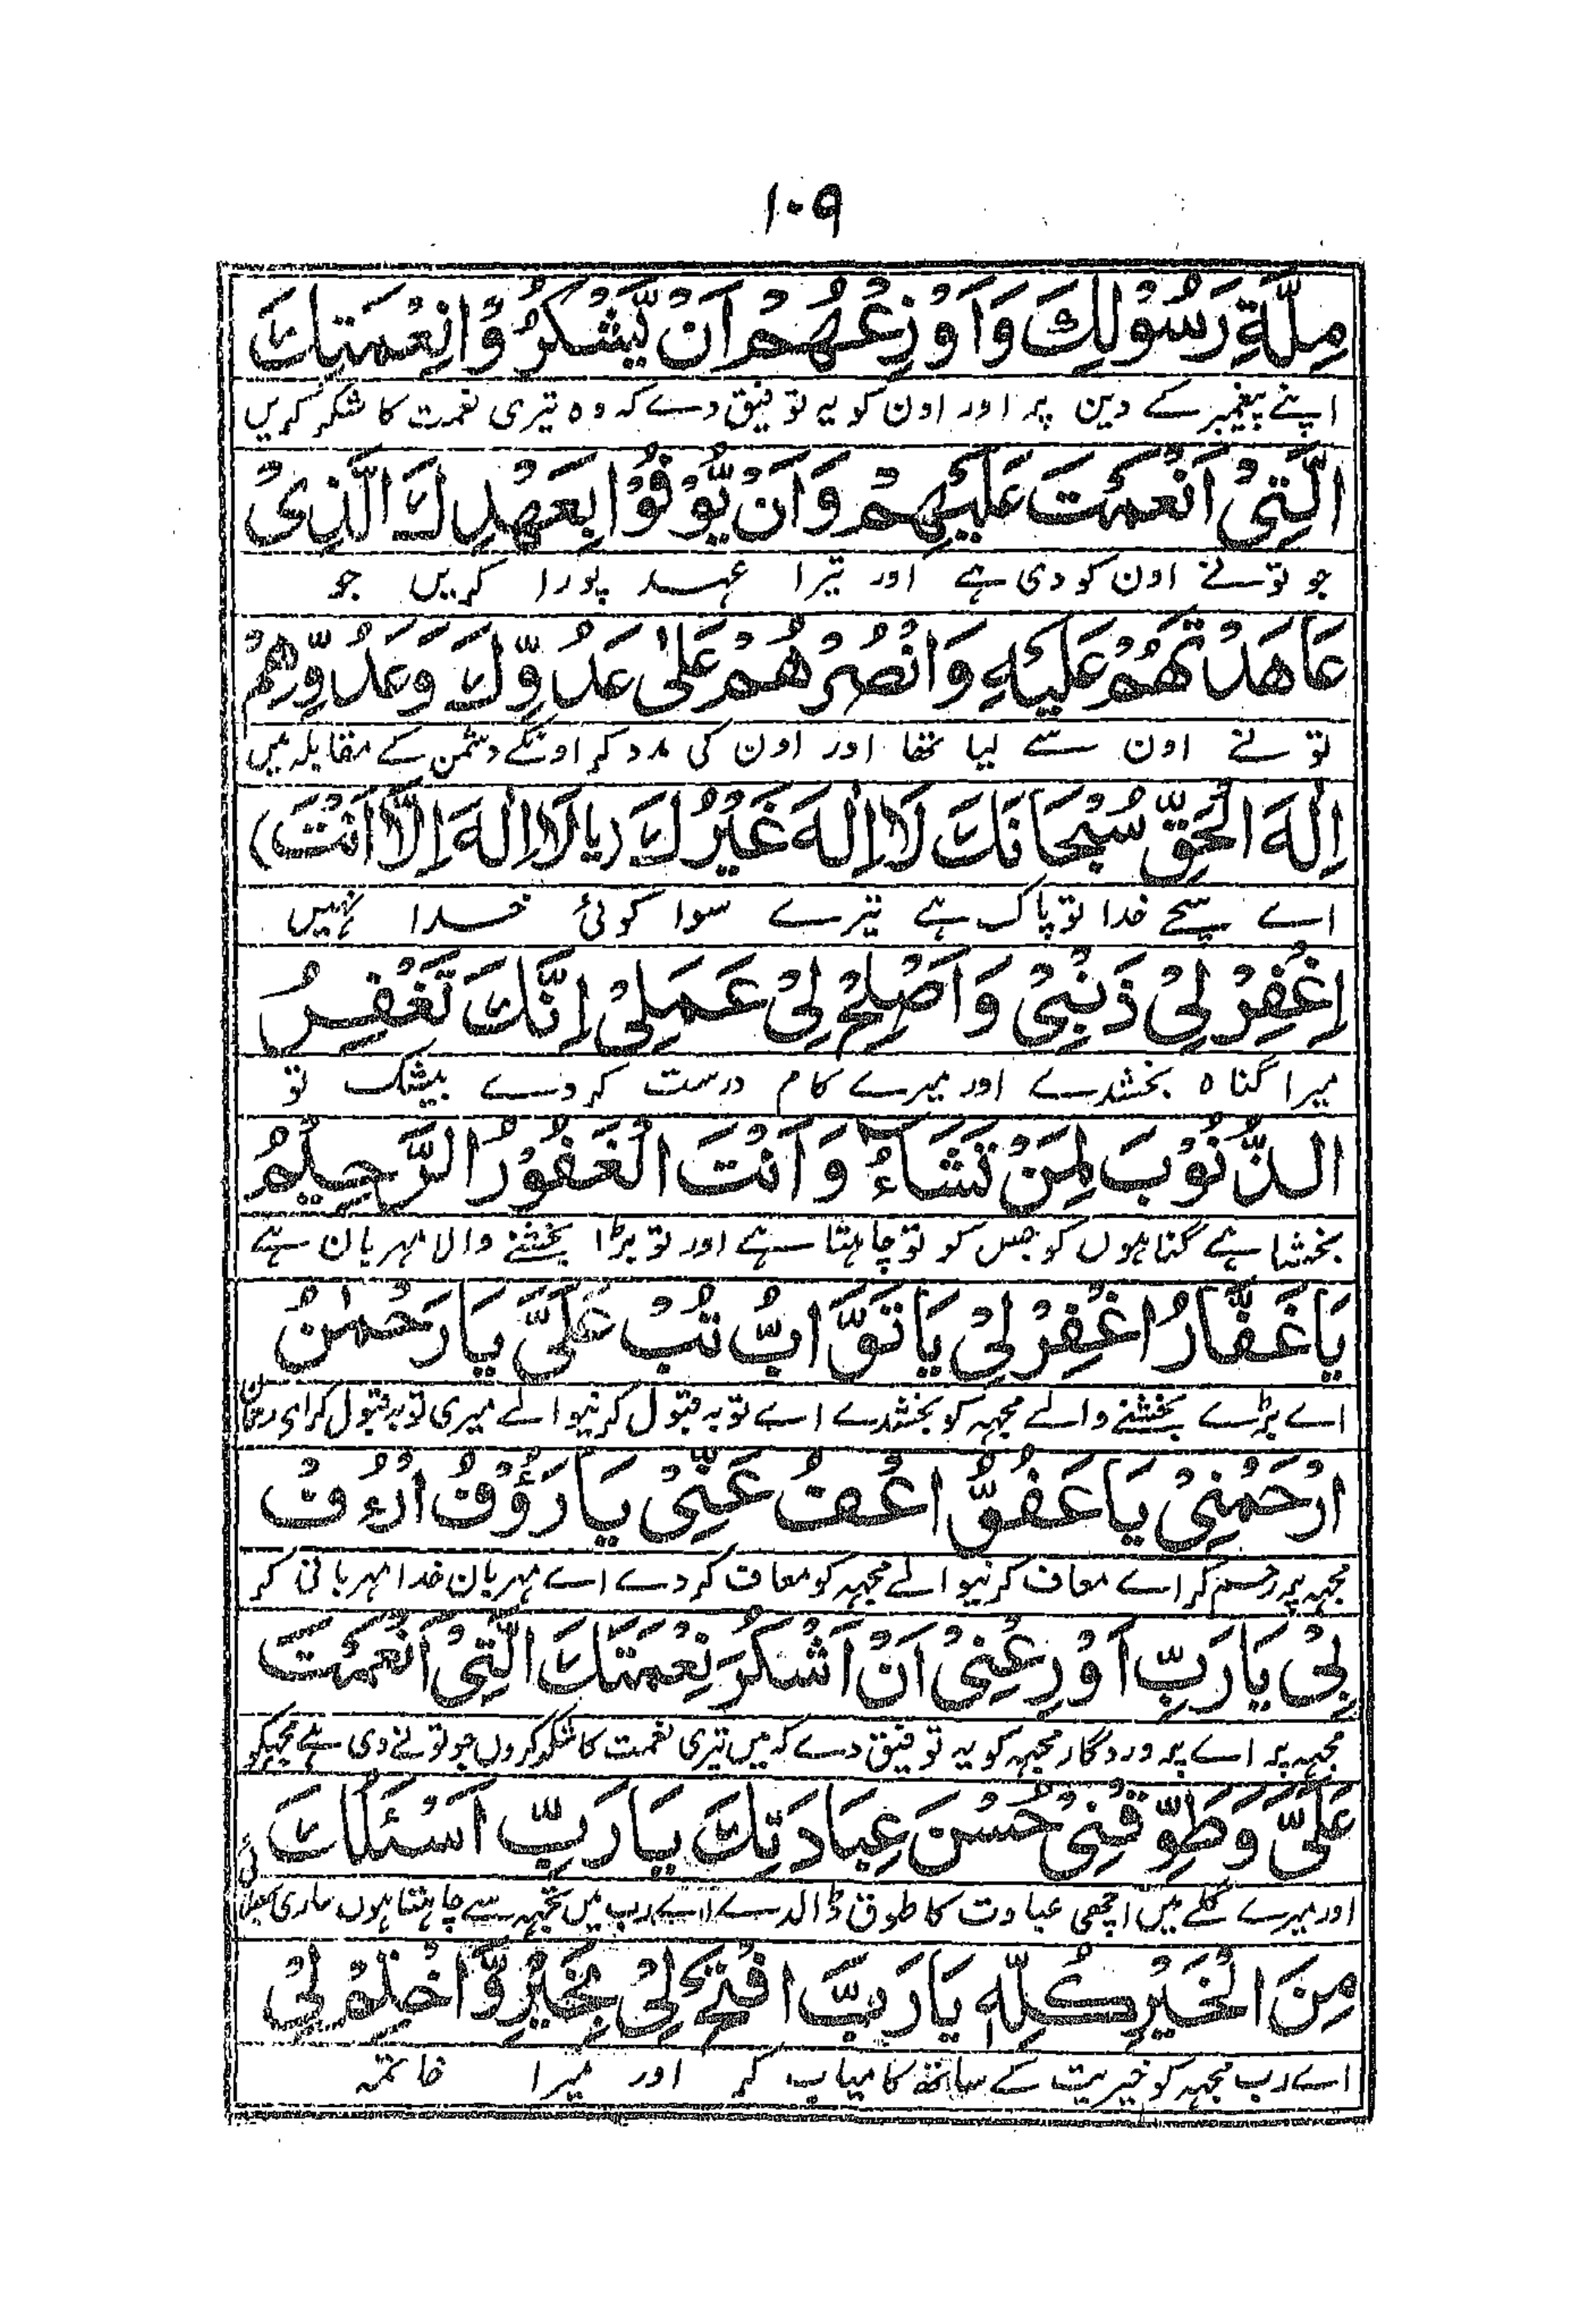 ۱۰۹
مِلَّةِ رَسُوْلِكَ وَاَوْزِعْهُمْ اَنْ يَّشْكُرُوْا نِعْمَتَكَ
اپنے پیغمبر کے دین پر اور اون کو یہ توفیق دے کہ وہ تیری نعمت کا شکر کریں
الَّتِيْ اَنْعَمْتَ عَلَيْهِمْ وَاَنْ يُّوْفُوْا بِعَهْدِكَ الَّذِيْ
جو تو نے اون کو دی ہے اور تیرا عہد پورا کریں جو
عَاهَدْتَّهُمْ عَلَيْهِ وَانْصُرْهُمْ عَلٰى عَدُوِّكَ وَعَدُوِّهِمْ
تو نے اون سے لیا تھا اور اون کی مدد کر اونکے دشمن کے مقابلہ میں
اِلٰهَ الْحَقِّ سُبْحَانَكَ لَا اِلٰهَ غَيْرُكَ (يا لَا اِلٰهَ اِلَّا اَنْتَ)
اے سچے خدا تو پاک ہے تیرے سوا کوئی خدا نہیں
اِغْفِرْ لِيْ ذَنْبِيْ وَاَصْلِحْ لِيْ عَمَلِيْ اِنَّكَ تَغْفِرُ
میرا گناہ بخشدے اور میرے کام درست کردے بیشک تو
الذُّنُوْبَ لِمَنْ تَشَآءُ وَاَنْتَ الْغَفُوْرُ الرَّحِيْمُ
بخشتا ہے گناہوں کو جس کو تو چاہتا ہے اور تو بڑا بخشنے والا مہربان ہے
يَا غَفَّارُ اغْفِرْ لِيْ يَا تَوَّابُ تُبْ عَلَيَّ يَا رَحْمٰنُ
اے بڑے بخشنے والے مجہہ کو بخشدے اے توبہ قبول کرنیوالے میری توبہ قبول کر اے رحمٰن
ارْحَمْنِيْ يَا عَفُوُّ اعْفُ عَنِّيْ يَا رَؤُوْفُ ارْءُفْ
مجہہ پر رحم کر اے معاف کرنیوالے مجہہ کو معاف کردے اے مہربان خدا مہربانی کر
بِيْ يَا رَبِّ اَوْزِعْنِيْ اَنْ اَشْكُرَ نِعْمَتَكَ الَّتِيْ اَنْعَمْتَ
مجہہ پر اے پروردگار مجہہ کو یہ توفیق دے کہ میں تیری نعمت کا شکر کروں جو تو نے دی ہے مجہکو
عَلَيَّ وَطَوِّقْنِيْ حُسْنَ عِبَادَتِكَ يَا رَبِّ اَسْئَلُكَ
اور میرے گلے میں اچھی عبادت کا طوق ڈالدے اے رب میں تجہہ سے چاہتا ہوں ساری
مِنَ الْخَيْرِ كُلِّهٖ يَا رَبِّ افْتَحْ لِيْ بِخَيْرٍ وَّاخْتِمْ لِيْ
اے رب مجہہ کو خیریت کے ساتھ کامیاب کر اور میرا خاتمہ